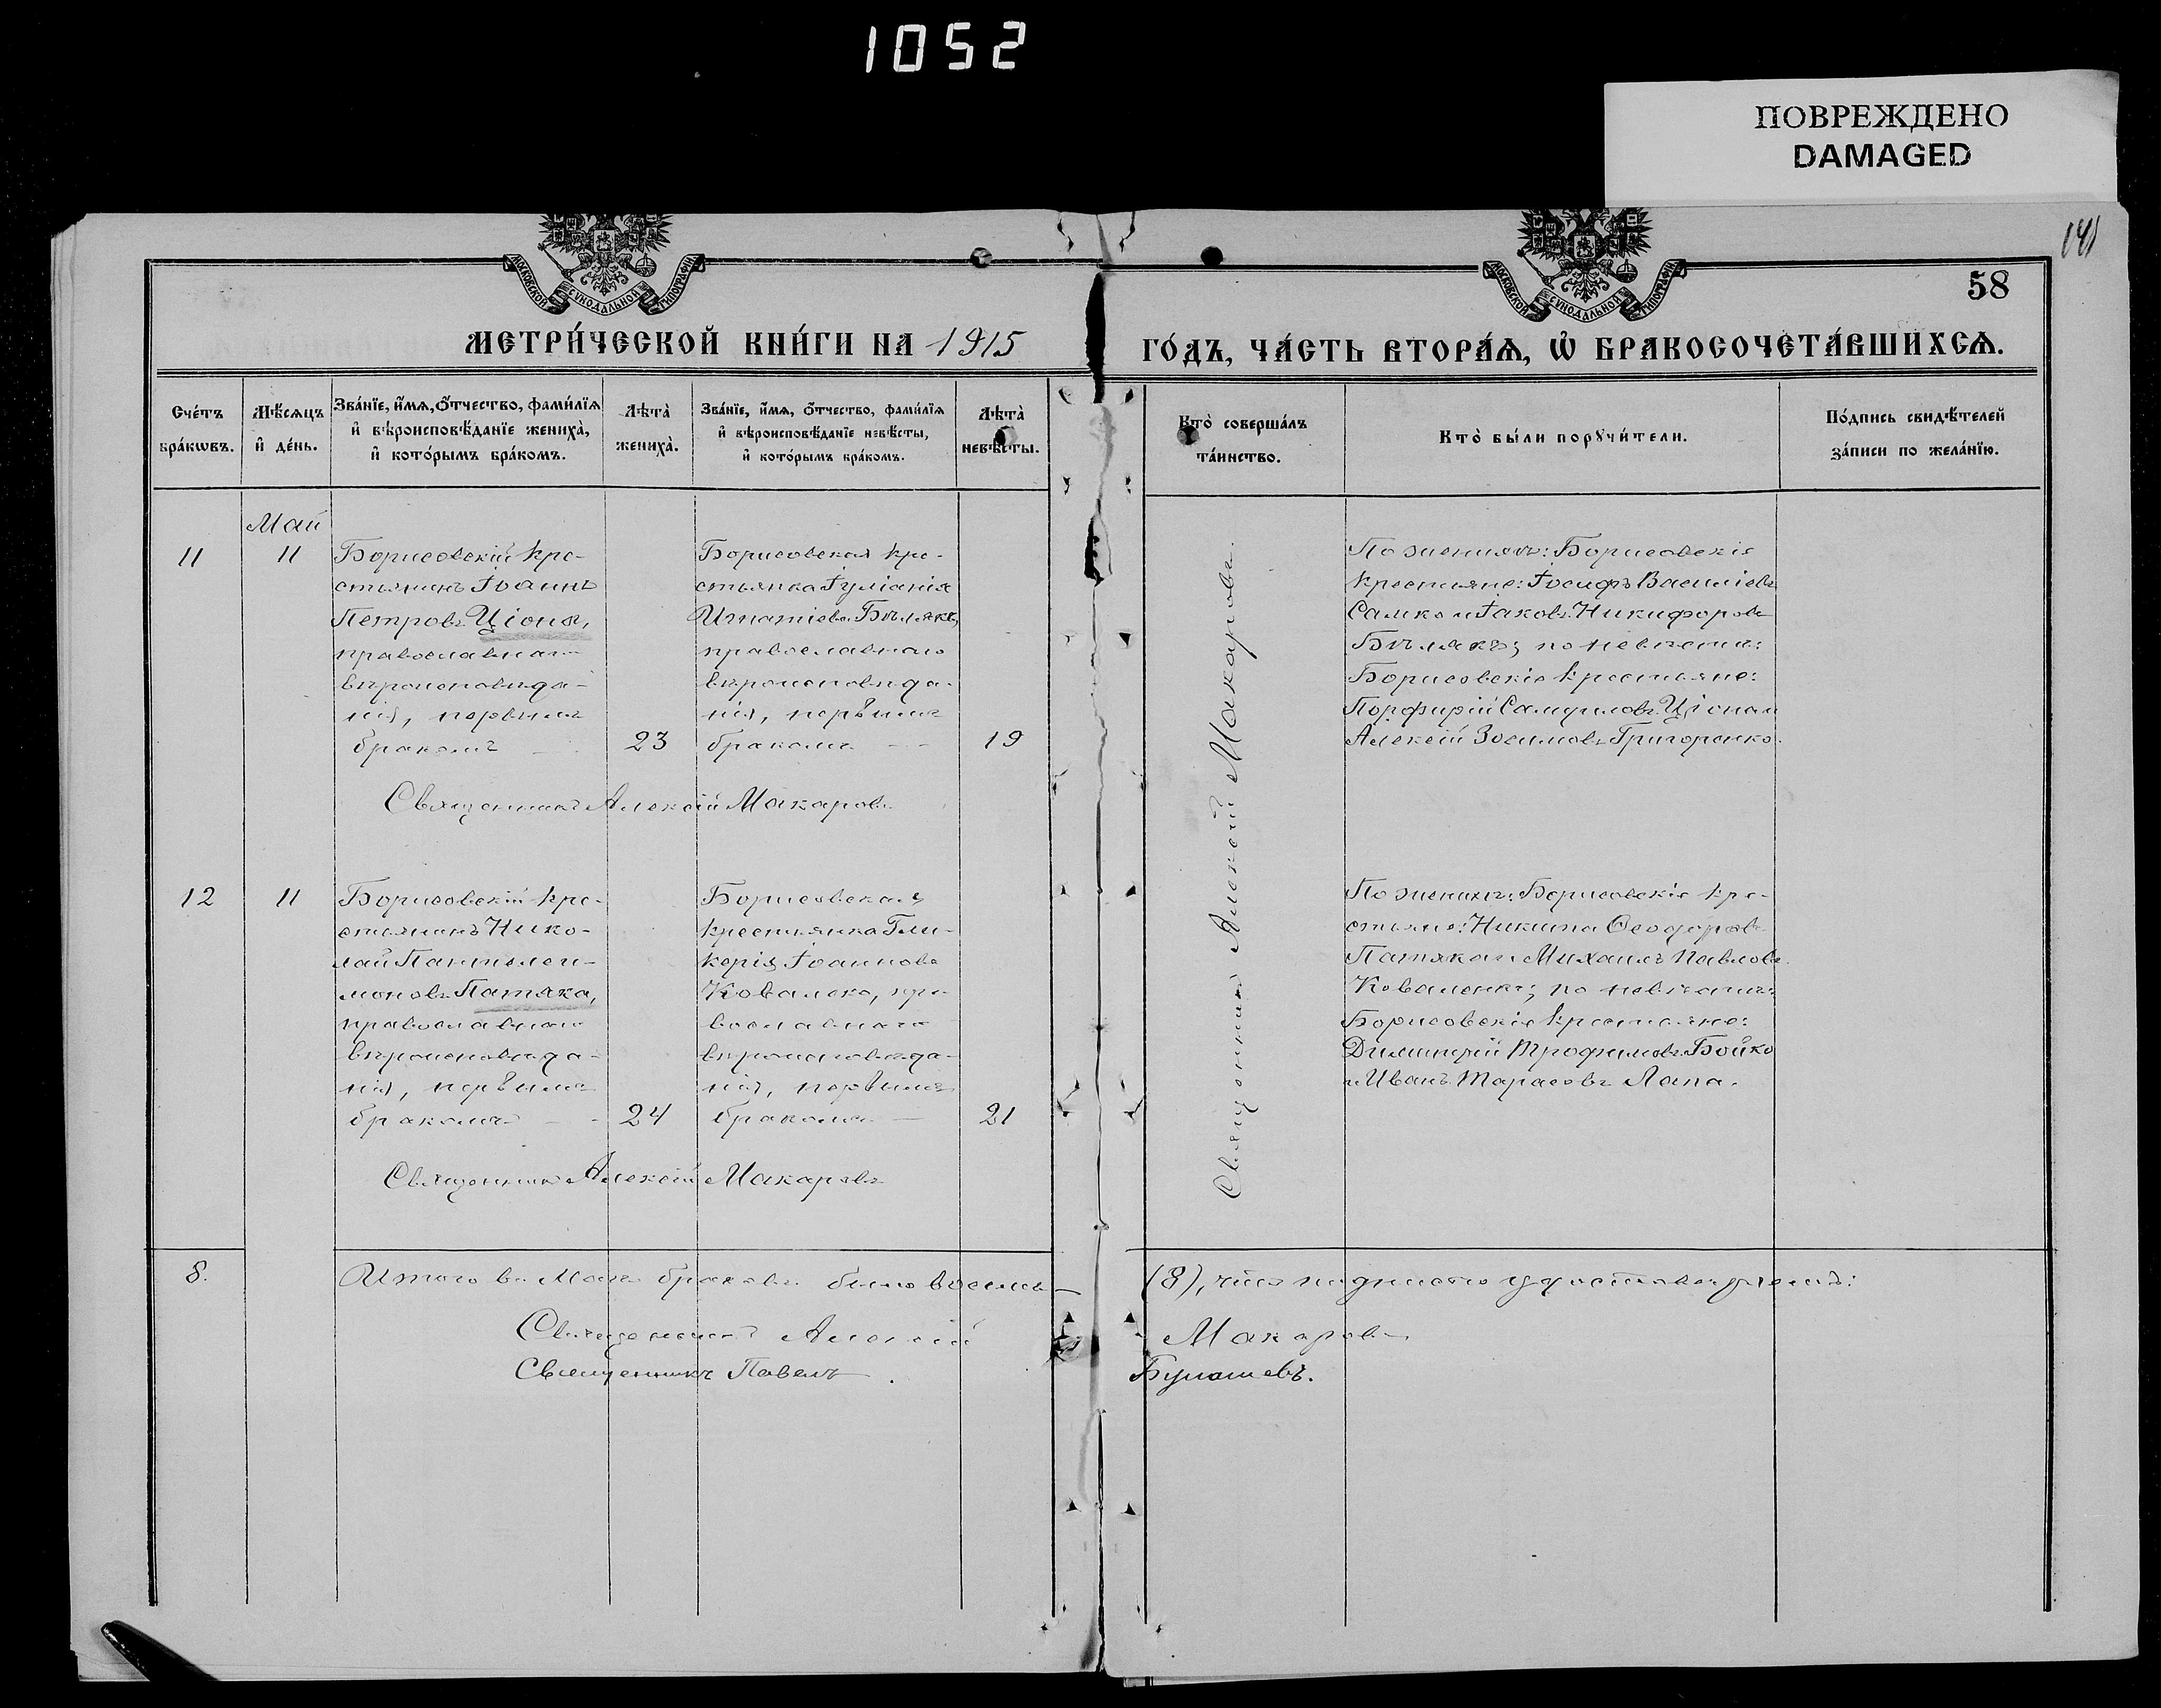 1052
ПОВРЕЖДЕНО
DAMAGED
141
58
МОСКОВСКОЙ СѴНОДАЛЬНОЙ ТИПОГРАФІИ
МОСКОВСКОЙ СѴНОДАЛЬНОЙ ТИПОГРАФІИ
МЕТРИ́ЧЕСКОЙ КНИ́ГИ НА 1915 ГО́ДЪ, ЧА́СТЬ ВТОРА́Ѧ, Ѽ БРАКОСОЧЕТА́ВШИХСѦ.
Сче́тъ
бра́кѡвъ.
Мѣ́сѧцъ
и҆ де́нь.
Зва́нїе, и҆́мѧ, ѻ҆́тчество, фами́лїѧ
и҆ вѣроисповѣ́данїе жениха̀,
и҆ кото́рымъ бра́комъ.
Лѣта̀
жениха̀.
Зва́нїе, и҆́мѧ, ѻ҆́тчество, фами́лїѧ
и҆ вѣроисповѣ́данїе невѣ́сты,
и҆ кото́рымъ бра́комъ.
Лѣта̀
невѣ́сты.
Кто̀ соверша́лъ
та́инство.
Кто̀ бы́ли порꙋчи́тели.
По́дпись свидѣ́телей
за́писи по жела́нїю.
Май
11
11
Борисовскій кре-
стьянинъ Іоаннъ
Петровъ Ціона,
православнаго
вѣроисповѣда-
нія, первымъ
бракомъ
23
Борисовская кре-
стьянка Іуліанія
Игнатіева Бѣлякъ,
православнаго
вѣроисповѣда-
нія, первымъ
бракомъ
19
Священникъ Алексій Макаровъ.
По женихѣ: Борисовскіе
крестьяне: Іосифъ Васильевъ
Самко и Іаковъ Никифоровъ
Бѣлякъ; по невѣстѣ:
Борисовскіе крестьяне:
Порфирій Самуиловъ Ціона и
Алексій Зосимовъ Григоренко.
Священникъ Алексій Макаровъ.
12
11
Борисовскій кре-
стьянинъ Нико-
лай Пантелеи-
моновъ Патяка,
православнаго
вѣроисповѣда-
нія, первымъ
бракомъ
24
Борисовская
крестьянка Гли-
керія Іоаннова
Ковалева, пра-
вославнаго
вѣроисповѣда-
нія, первымъ
бракомъ
21
Священникъ Алексій Макаровъ
По женихѣ: Борисовскіе кре-
стьяне: Никита Ѳеодоровъ
Патяка и Михаилъ Павловъ
Коваленко; по невѣстѣ:
Борисовскіе крестьяне:
Димитрій Трофимовъ Бойко
и Иванъ Тарасовъ Лапа.
8.
Итого въ Маѣ браковъ было восемь (8), что подписью удостовѣряемъ:
Священникъ Алексій Макаровъ
Священникъ Павелъ